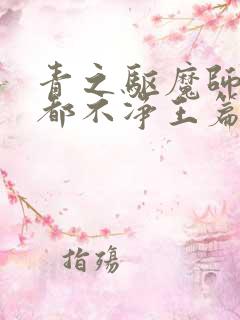 青之驱魔师
都不净王篇
指殇